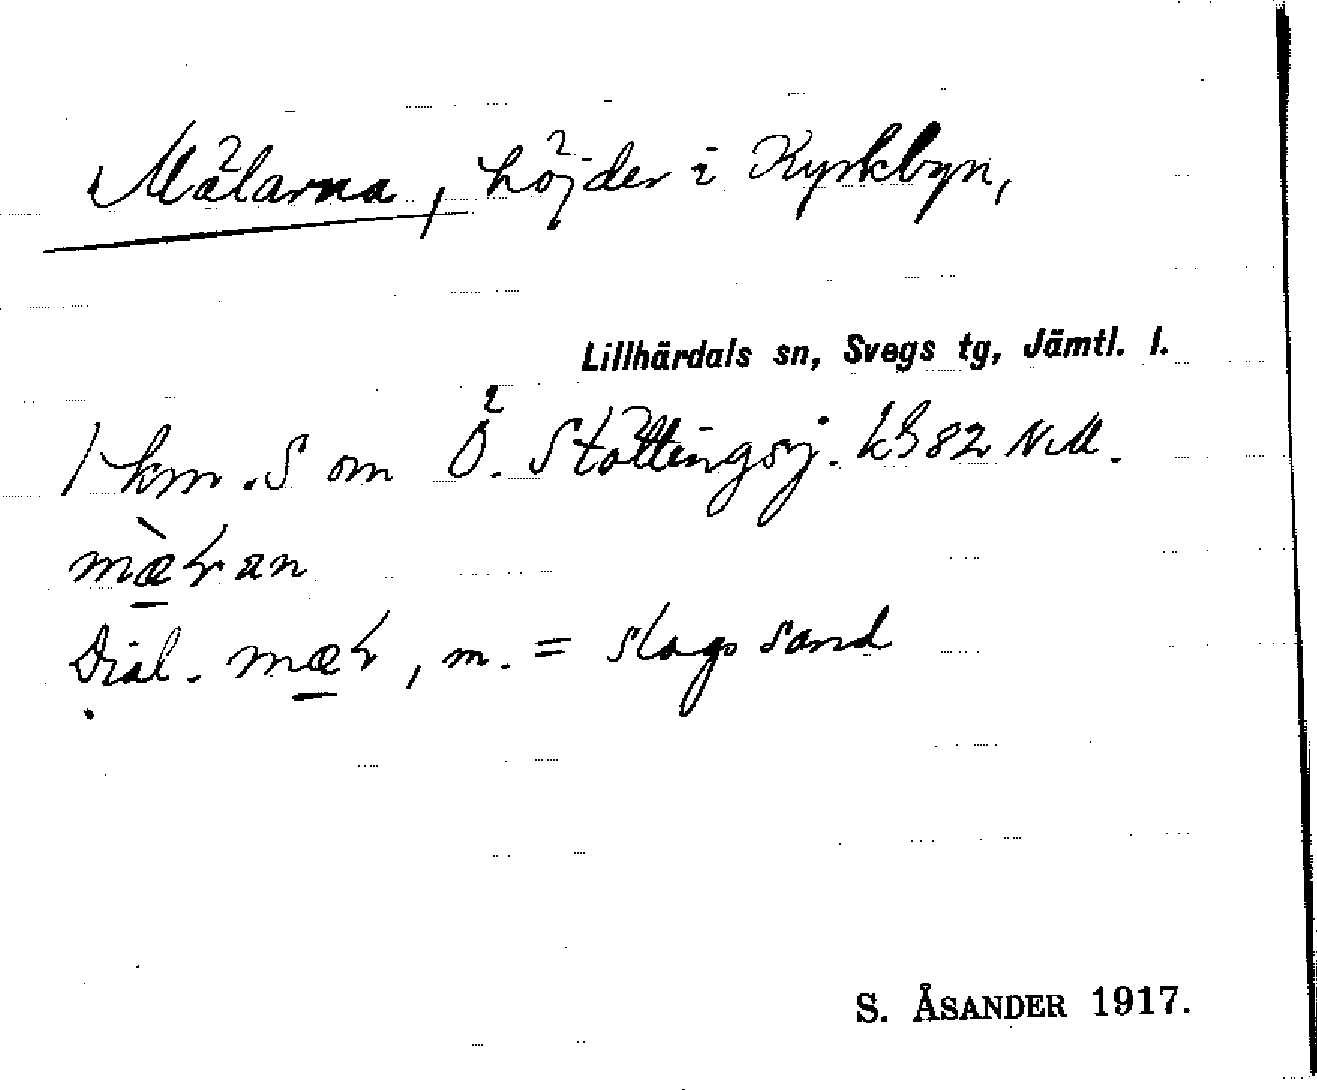 Mälarna, höjder i Kyrkbyn,
Lillhärdals sn, Svegs tg, Jämtl. l.
1 km. S om Ö. Stöttingsj. kB 82 NM.
mæ̀ɽan
Dial. mæɽ, m. = slags sand
S. ÅSANDER 1917.